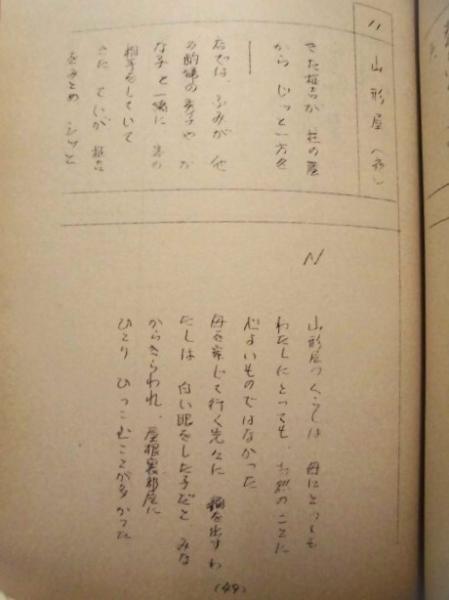 〃 山形屋 (夜)
きた が の蔭
から じっと一方を
店では、ふみが 他
の酌婦の や か
な子と一緒に 客の
相手をしていて
きた ていが
をみとめ シッと
N
山形屋のくらしは 母にとっても
わたしにとっても、当然のことに
心よいものではなかった
母を案じて行く先々に 顔を出すわ
たしは 白い眼をした子だと みな
からきらわれ、屋根裏部屋に
ひとり ひっこむことが多かった
(49)